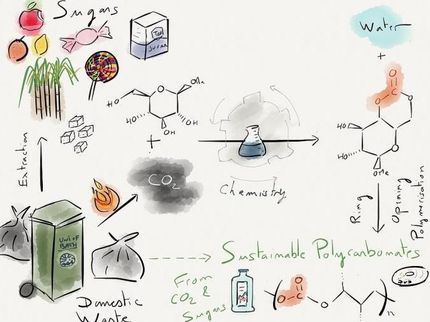 Sugars
Sugar
Water
+
O
O
C
O
OMe
HO
O
HO
OH
OH
O
HO
HO
OMe
+
Extraction
CO2
Chemistry
Ring
Opening
Polymerization
UNI OF
BATH
Domestic
Waste
Sustainable Polycarbonates
From
CO2 &
Sugars
O
O
C
O
n